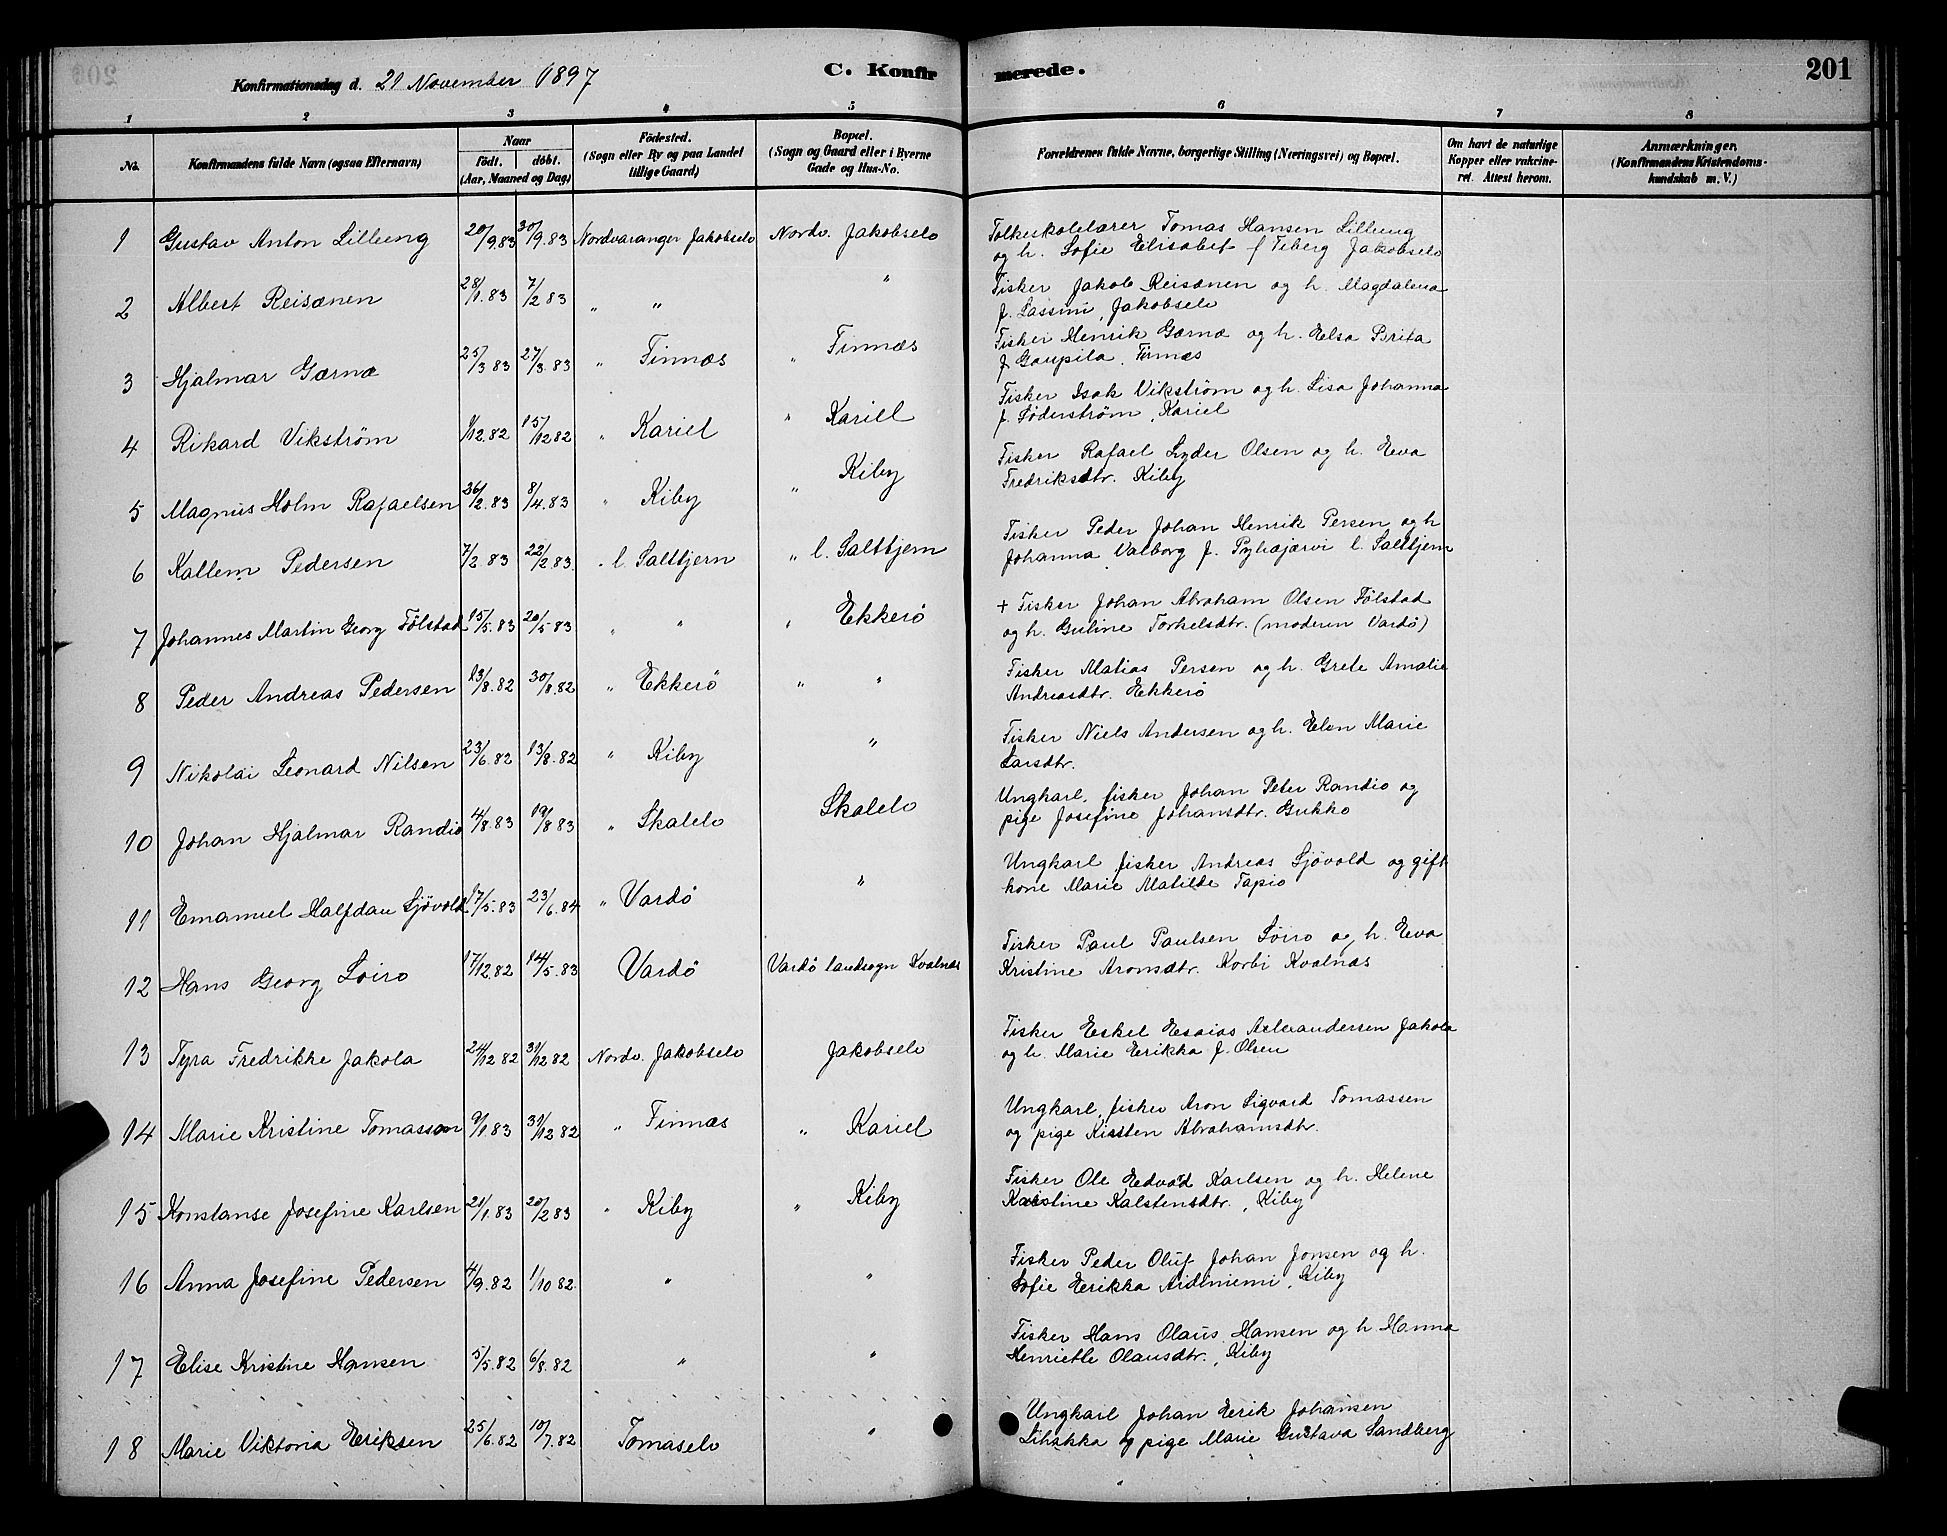 Konfirmationsdag d. 21 November 1897 C. Konfirmerede. 201
1 2 3 4 5 6 7 8
No.
Konfirmandens fulde Navn (ogsaa Efternavn)
Naar
født. døbt.
(Aar, Maaned og Dag)
Fødested.
(Sogn eller By og paa Landet
tillige Gaard)
Bopæl.
(Sogn og Gaard eller i Byerne
Gade og Hus-No.
Forældrenes fulde Navne, borgerlige Stilling (Næringsvei) og Bopæl.
Om havt de naturlige
Kopper eller vakcine-
ret. Attest herom.
Anmærkninger.
(Konfirmandens Kristendoms-
kundskab m. V.)
1 Gustav Anton Lilleng 20/9.83 30/9.83 Nordvaranger Jakobselv Nordv. Jakobselv
Folkeskolelærer Tomas Hansen Lilleng
og h. Sofie Elisabet f Feberg Jakobselv
2 Albert Reisænen 28/1.83 7/2 83 " " "
Fisker Jakob Reisænen og h. Magdalena
f. Lassini, Jakobselv
3 Hjalmar Gærnæ 25/3 83 27/3.83 " Finnæs " Finnæs
Fisker Henrik Gærnæ og h. Elsa Brita
f Gaupila. Finnæs
4 Rikard Vikström 1/12.82 15/12 82 " Kariel " Kariel
Fisker Isak Vikström og h. Lisa Johanna
f. Söderström, Kariel
5 Magnus Holm Rafaelsen 26/2.83 8/4.83 " Kiby " Kiby
Fisker Rafael Lyder Olsen og h. Eva
Fredriksdtr. Kiby
6 Kallem Pedersen 7/2.83 22/2.83. " l. Saltbjern " l. Saltbjern
Fisker Peder Johan Henrik Persen og h
Johanna Valborg f. Pyhæjærvi l. Saltbjern
7 Johannes Martin Georg Fölstad 15/5.83 20/5 83 " " " Ekkerö
+ Fisker Johan Abraham Olsen Fölstad
og h. Guline Torkelsdtr. (moderen Vardö)
8 Peder Andreas Pedersen 13/8.82 30/8.82 " Ekkerö " "
Fisker Matias Persen og h. Grete Amalie
Andreasdtr. Ekkerö
9 Nikolai Leonard Nilsen 23/6.82 13/8.82 " Kiby "
Fisker Niels Andersen og h. Elen Marie
Larsdtr.
10 Johan Hjalmar Randio 4/8.83 19/8.83 " Skalelv Skalelv
Ungkarl, fisker Johan Peter Randio og
pige Josefine Johansdtr. Gukko
11 Emanuel Halfdan Sjövold 17/5.83 23/6.84 " Vardö "
Ungkarl fisker Andreas Sjövold og gift
kone Marie Matilde Tapio
12 Hans Georg Soiro 17/12.82 14/5.83 Vardö Vardö landsogn Kvalnæs
Fisker Paul Paulsen Soiro og h. Eva
Kristine Aronsdtr. Korbi Kvalnæs
13 Tyra Fredrikke Jakola 24/12 82 31/12 82 Nordv. Jakobselv Jakobselv
Fisker Eskel Esaias Aslexandersen Jakola
og h. Marie Erikka f. Olsen
14 Marie Kristine Tomassen 9/1.83 31/12 82 " Finnæs " Kariel
Ungkarl, fisker Aron Sigvard Tomassen
og pige Kirsten Abrahamsdtr.
15 Konstanse Josefine Karlsen 21/1.83 20/2 83 " Kiby " Kiby
Fisker Ole Edvard Karlsen og h. Helene
Karstine Kalstensdtr., Kiby
16 Anna Josefine Pedersen 4/9.82 1/10 82. " "
Fisker Peder Oluf Johan Jonsen og h.
Sofie Erikka Aidiniemi, Kiby
17 Elise Kristine Hansen 5/5.82 6/8.82 " "
Fisker Hans Olaus Hansen og h Hanna
Henriette Olausdtr., Kiby
18 Marie Viktoria Eriksen 25/6.82 10/7.82 Tomaselv "
Ungkarl Johan Erik Johansen
Lihakka og pige Marie Gustava Sandberg